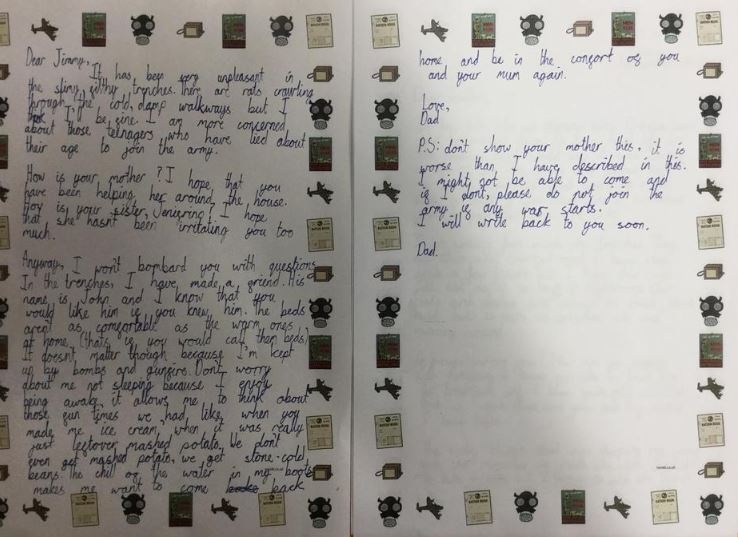 Dear Jimmy,
It has been very unpleasant in
the slimy, filthy trenches. There are rats crawling
through the cold, damp walkways but I
I'll be fine. I am more concerned
about those teenagers who have lied about
their age to join the army.
How is your mother? I hope that you
have been helping her around the house.
How is your sister, Jenifer? I hope
that she hasn't been irritating you too
much.
Anyway, I won't bombard you with questions.
In the trenches, I have made a friend. His
name is John and I know that you
would like him if you knew him. The beds
aren't as comfortable as the warm ones
at home, (that's if you would call them beds)
It doesn't matter though because I'm kept
up by bombs and gunfire. Don't worry
about me not sleeping because I enjoy
being awake, it allows me to think about
those fun times we had like, when you
made me ice cream, when it was really
just leftover mashed potato. We don't
even get mashed potato, we get stone-cold
beans. The chill of the water in my boots
makes me want to come back
home and be in the comfort of you
and your mum again.
Love,
Dad
P.S: don't show your mother this, it is
worse than I have described in this.
I might not be able to come and
if I don't, please do not join the
army if any war starts.
I will write back to you soon.
Dad.